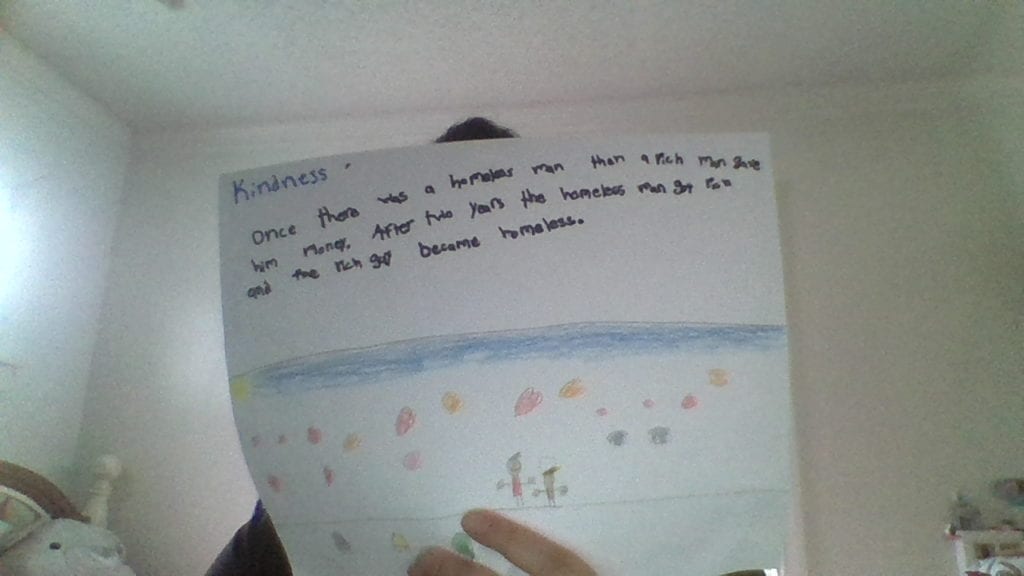 Kindness
Once there was a homeless man than a rich man gave
him money. After two years the homeless man got rich
and the rich guy became homeless.